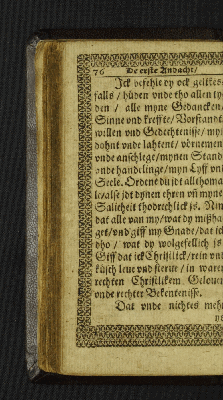 76 De erste Andacht/
Jck befehle dy ock gelikes-
falls / hüden vnde tho allen ty-
den / alle myne Gedancken/
Sinne vnd kreffte/ Vorstandt/
willen vnd Gedechtenisse/ my
dohnt vnde lahtent/ vörnement
vnde anschlege/mynen Stand
vnde handelinge/myn Lyff vnd
Seele. Ordent du jdt all thoma
le/alse jdt dynen ehren vn myne
Salicheit thodrechlick js. Nim
dat alle van my/wat dy mißha
get/vnd giff my Gnade/dat ick
dho / wat dy wolgefellich js
Giff dat ick Christlick/rein vnd
küsch leue vnd sterue / in waren
rechten Christlikem Gelouen
vnde rechter Bekentenisß.
Dat vnde nichtes mehr